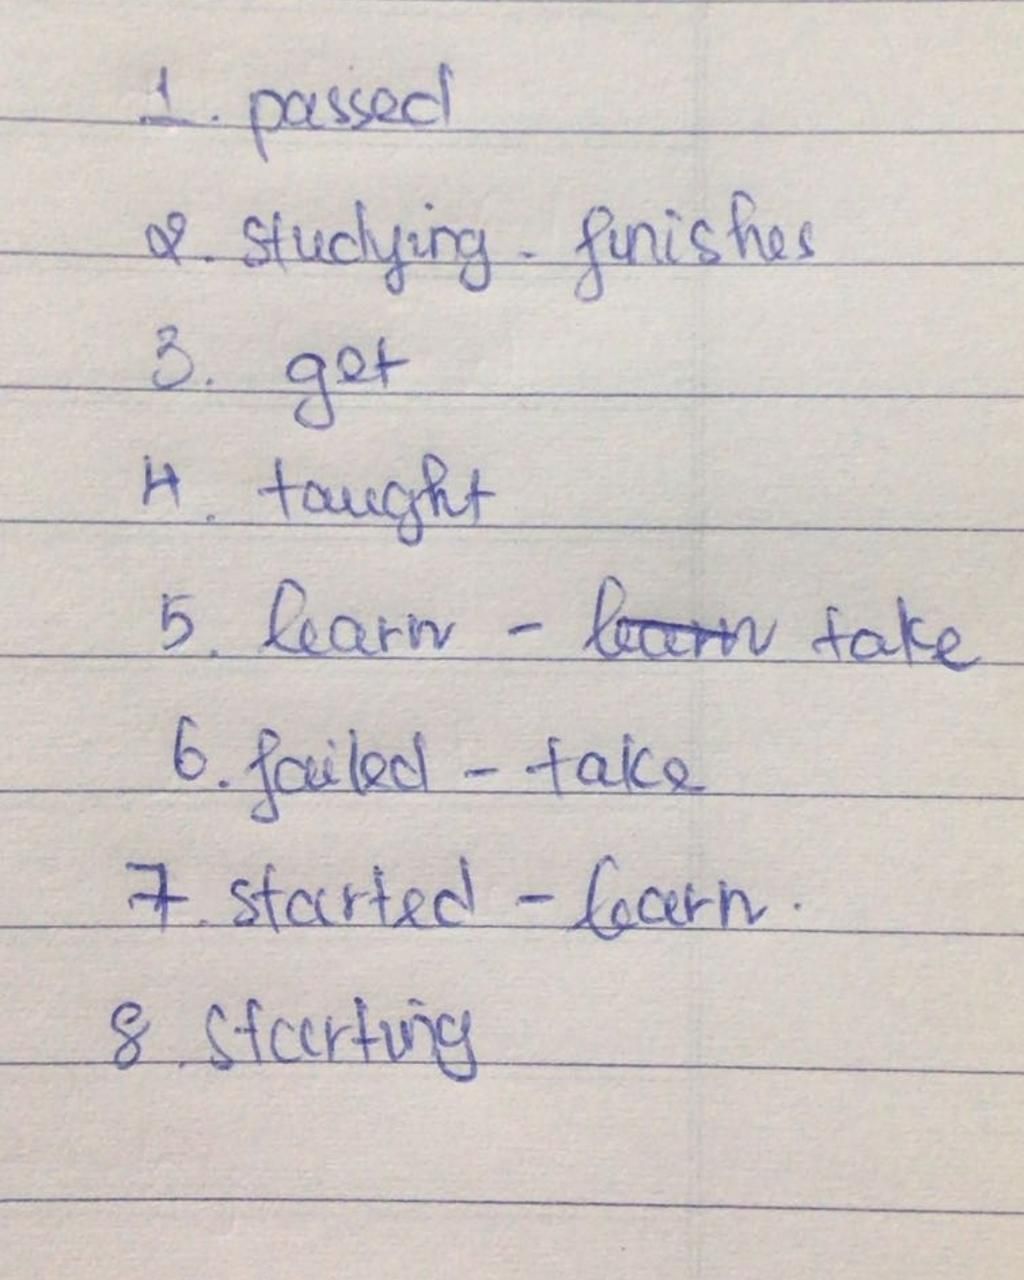 1. passed
2. studying - finishes
3. get
4. taught
5. learn - learn take
6. failed - take
7. started - learn.
8. starting